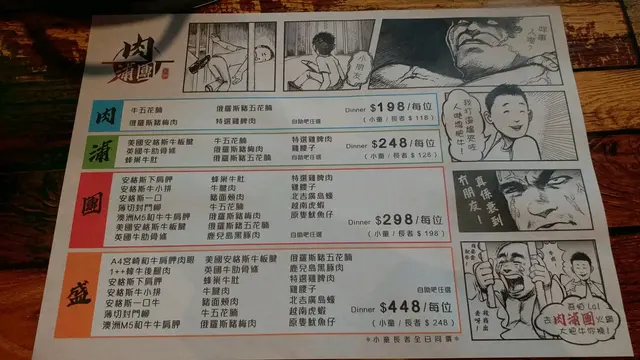 肉
蒲團
小朋友
人嚟?
肉
牛五花腩
俄羅斯豬五花腩
俄羅斯豬梅肉
特選雞脾肉
自助吧任選
Dinner $198/每位
(小童/長者 $118)
蒲
美國安格斯牛板腱
牛五花腩
特選雞脾肉
英國牛肋骨條
俄羅斯豬梅肉
雞腰子
蜂巢牛肚
自助吧任選
Dinner $248/每位
(小童/長者 $128)
團
安格斯下肩胛
蜂巢牛肚
特選雞脾肉
安格斯牛小排
牛腱肉
雞腰子
安格斯一口
豬面頰肉
北吉廣島蠔
薄切封門柳
牛五花腩
越南虎蝦
澳洲M5和牛牛肩胛
俄羅斯豬梅肉
原隻魷魚仔
美國安格斯牛板腱
俄羅斯豬五花腩
英國牛肋骨條
鹿兒島黑豚肉
自助吧任選
Dinner $298/每位
(小童/長者 $198)
盛
A4宮崎和牛肩胛肉眼
美國安格斯牛板腱
俄羅斯豬五花腩
1++韓牛後腿肉
英國牛肋骨條
鹿兒島黑豚肉
安格斯下肩胛
蜂巢牛肚
特選雞脾肉
安格斯牛小排
牛腱肉
雞腰子
安格斯一口牛
豬面頰肉
北吉廣島蠔
薄切封門柳
牛五花腩
越南虎蝦
澳洲M5和牛牛肩胛
俄羅斯豬梅肉
原隻魷魚仔
自助吧任選
Dinner $448/每位
(小童/長者 $248)
*小童長者全日同價*
真係善到
有朋友
lol
去肉蒲團火鍋